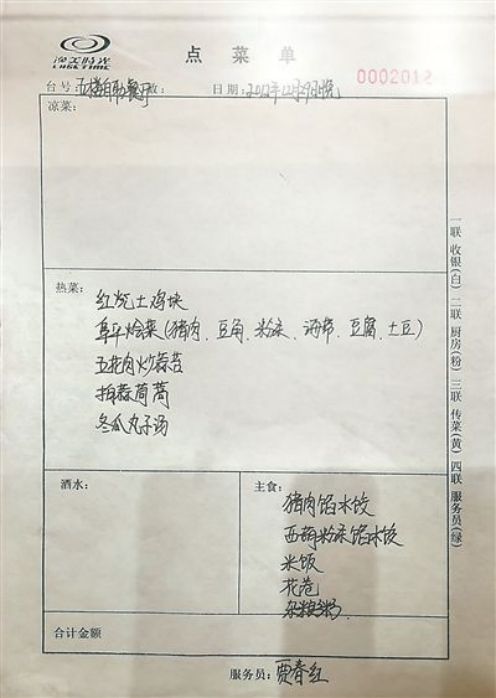 渔美時光
点菜单
0002012
台号:五楼自助餐厅 数: 日期:2012年12月29日晚
凉菜:
热菜:
红烧土鸡块
阜平烩菜(猪肉、豆角、粉条、海带、豆腐、土豆)
五花肉炒蒜苔
拍蒜茼蒿
冬瓜丸子汤
酒水:
主食:
猪肉馅水饺
西葫粉条馅水饺
米饭
花卷
杂粮粥
合计金额
服务员:贾春红
一联 收银(白) 二联 厨房(粉) 三联 传菜(黄) 四联 服务员(绿)